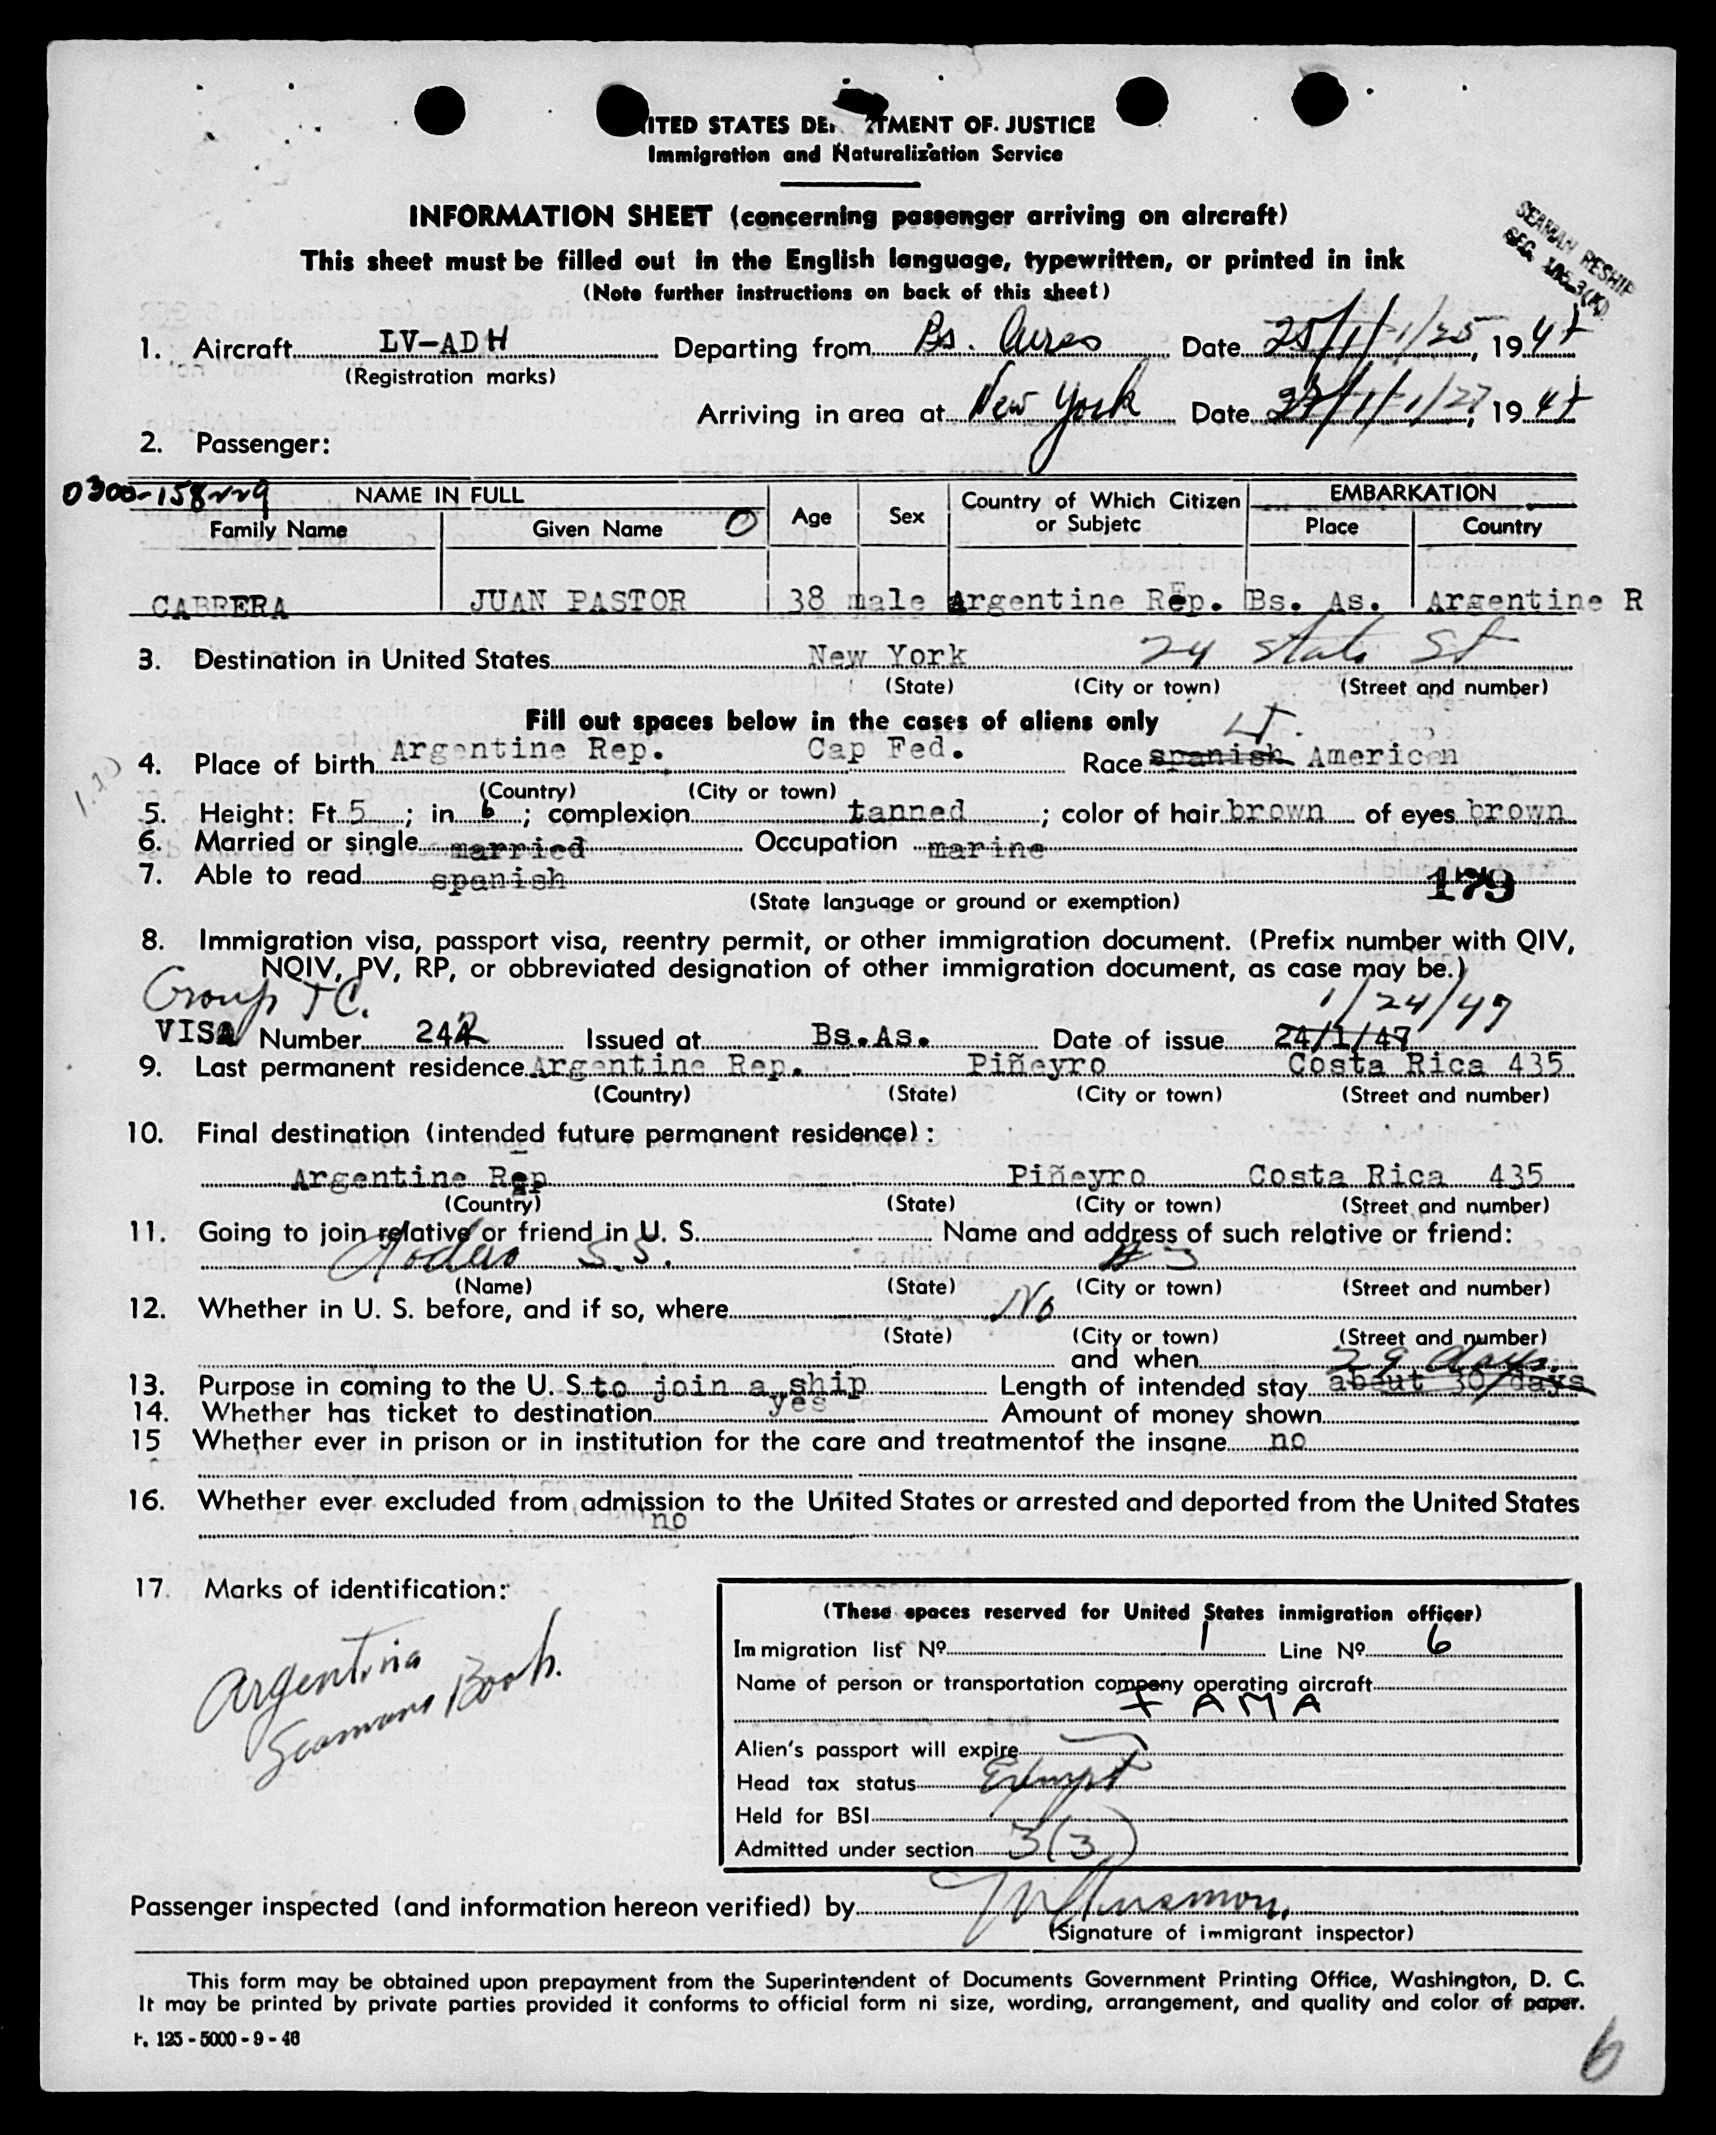 ITED STATES DE TMENT OF. JUSTICE
Immigration and Naturalization Service
INFORMATION SHEET (concerning passenger arriving on aircraft)
This sheet must be filled out in the English language, typewritten, or printed in ink
(Note further instructions on back of this sheet)
SEAMAN RESHIP
SEC. 3(K)
1. Aircraft LV-ADH Departing from Bs. Aires Date 25/1/ 1/25, 1947
(Registration marks)
Arriving in area at New York Date 27/1/ 1/27, 1947
2. Passenger:
0300-158229 NAME IN FULL Age Sex Country of Which Citizen or Subjetc EMBARKATION
Family Name Given Name O Place Country
CABRERA JUAN PASTOR 38 male Argentine Rep. Bs. As. Argentine R
3. Destination in United States New York 24 State St
(State) (City or town) (Street and number)
Fill out spaces below in the cases of aliens only
4. Place of birth Argentine Rep. Cap Fed. Race spanish American
(Country) (City or town)
5. Height: Ft. 5; in 6; complexion tanned; color of hair brown of eyes brown
6. Married or single married Occupation marine
7. Able to read spanish 179
(State language or ground or exemption)
8. Immigration visa, passport visa, reentry permit, or other immigration document. (Prefix number with QIV,
NQIV, PV, RP, or obbreviated designation of other immigration document, as case may be.)
Group TC. 1/24/47
VISA Number 242 Issued at Bs.As. Date of issue 24/1/47
9. Last permanent residence Argentine Rep. Piñeyro Costa Rica 435
(Country) (State) (City or town) (Street and number)
10. Final destination (intended future permanent residence):
Argentine Rep Piñeyro Costa Rica 435
(Country) (State) (City or town) (Street and number)
11. Going to join relative or friend in U. S. Name and address of such relative or friend:
S.S.
(Name) (State) (City or town) (Street and number)
12. Whether in U. S. before, and if so, where No
(State) (City or town) (Street and number)
and when 29 days.
13. Purpose in coming to the U. S. to join a ship Length of intended stay about 30 days
14. Whether has ticket to destination yes Amount of money shown
15 Whether ever in prison or in institution for the care and treatmentof the insane no
16. Whether ever excluded from admission to the United States or arrested and deported from the United States
no
17. Marks of identification:
Argentina
Seamans Book.
(These spaces reserved for United States inmigration officer)
Immigration list Nº 1 Line Nº 6
Name of person or transportation company operating aircraft
FAMA
Alien's passport will expire
Head tax status Exempt
Held for BSI
Admitted under section 3(3)
Passenger inspected (and information hereon verified) by
(Signature of immigrant inspector)
This form may be obtained upon prepayment from the Superintendent of Documents Government Printing Office, Washington, D. C.
It may be printed by private parties provided it conforms to official form ni size, wording, arrangement, and quality and color of paper.
F. 125 - 5000 - 9 - 46
6